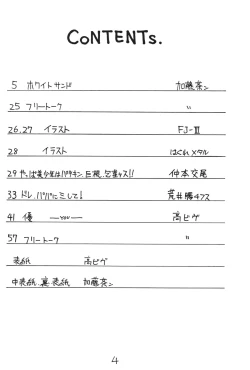 CONTENTS.
5 ホワイトサンド 加藤茶ン
25 フリートーク 〃
26.27 イラスト FJ-Ⅱ
28 イラスト はぐれメタル
29 やっぱ美少年はパツキン、巨根、包茎ッス!! 仲本交尾
33 ドレ、パパにミして! 荒井勝キフス
41 優 ―you― 高ピゲ
57 フリートーク 〃
表紙 高ピゲ
中表紙、裏表紙 加藤茶ン
4